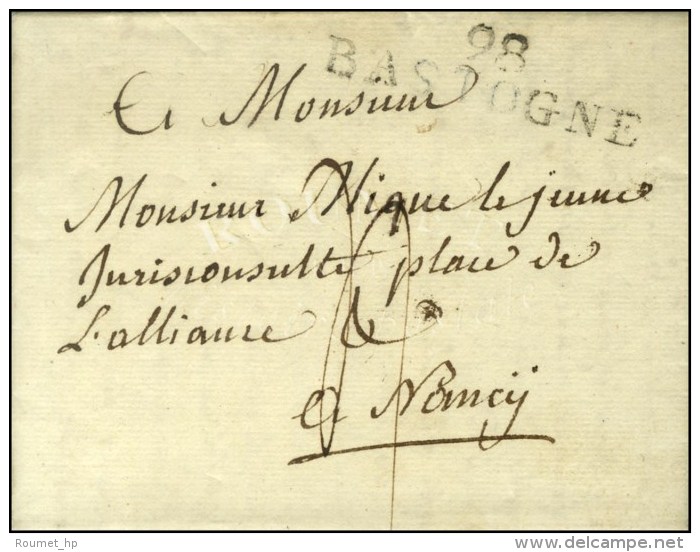 98
BASTOGNE
A Monsieur
Monsieur Mique le jeune
Jurisconsulte place de
L'alliance &
a Nancÿ
Roumet_hp
delcampe.net